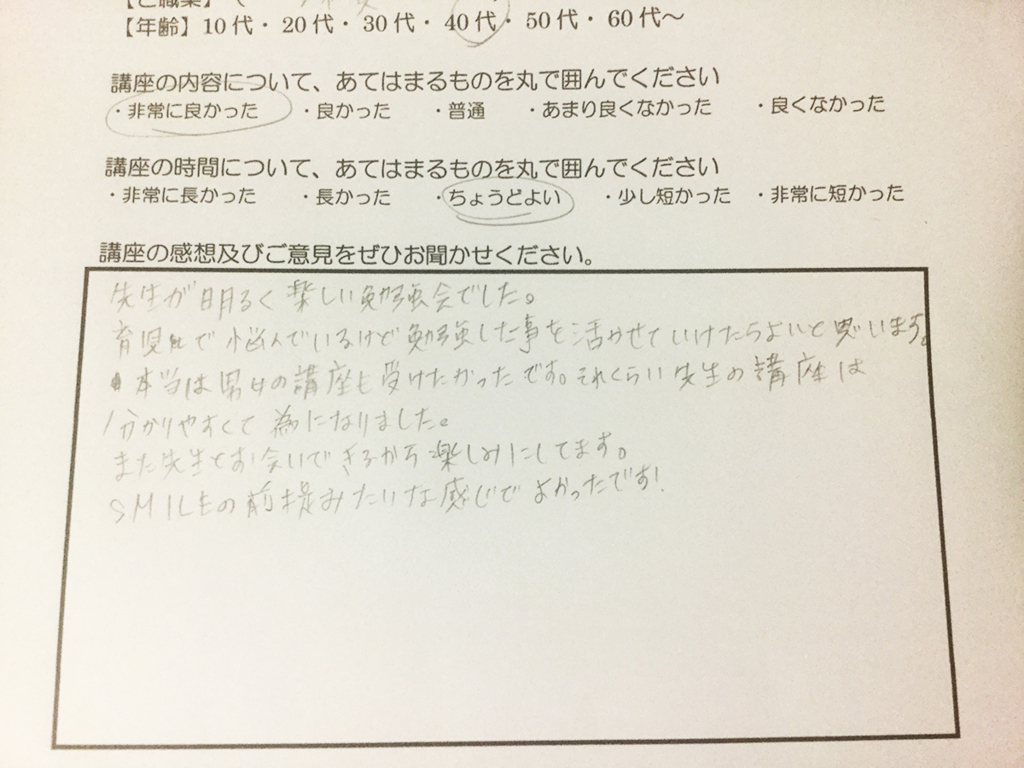 【ご職業】(
【年齢】10代・20代・30代・40代・50代・60代～
講座の内容について、あてはまるものを丸で囲んでください
・非常に良かった ・良かった ・普通 ・あまり良くなかった ・良くなかった
講座の時間について、あてはまるものを丸で囲んでください
・非常に長かった ・長かった ・ちょうどよい ・少し短かった ・非常に短かった
講座の感想及びご意見をぜひお聞かせください。
先生が明るく楽しい勉強会でした。
育児で悩んでいるけど勉強した事を活かせていけたらよいと思います。
本当は男女の講座も受けたかったです。それくらい先生の講座は
分かりやすくて為になりました。
また先生とお会いできるから楽しみにしてます。
SMILEの前提みたいな感じでよかったです!